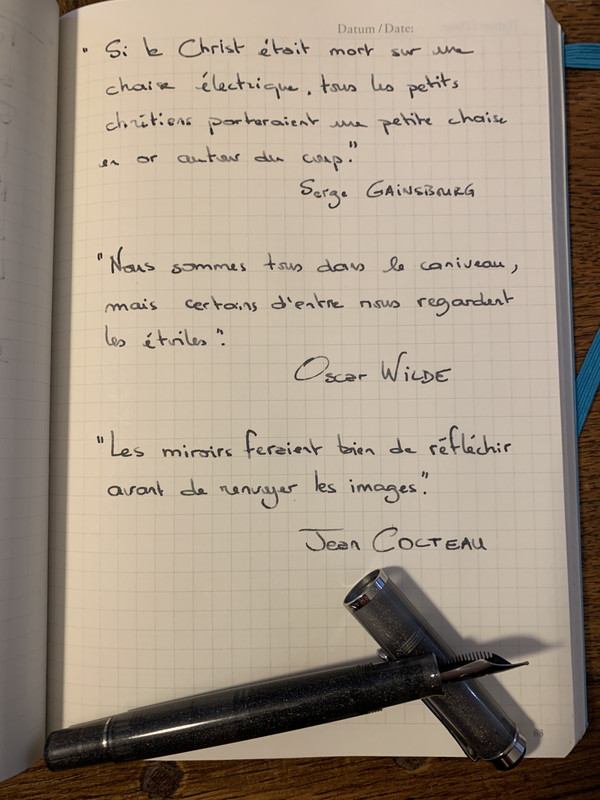 Datum / Date:
" Si le Christ était mort sur une
chaise électrique, tous les petits
chrétiens porteraient une petite chaise
en or autour du coup."
Serge GAINSBOURG
"Nous sommes tous dans le caniveau,
mais certains d'entre nous regardent
les étoiles".
Oscar WILDE
"Les miroirs feraient bien de réfléchir
avant de renvoyer les images".
Jean COCTEAU
63